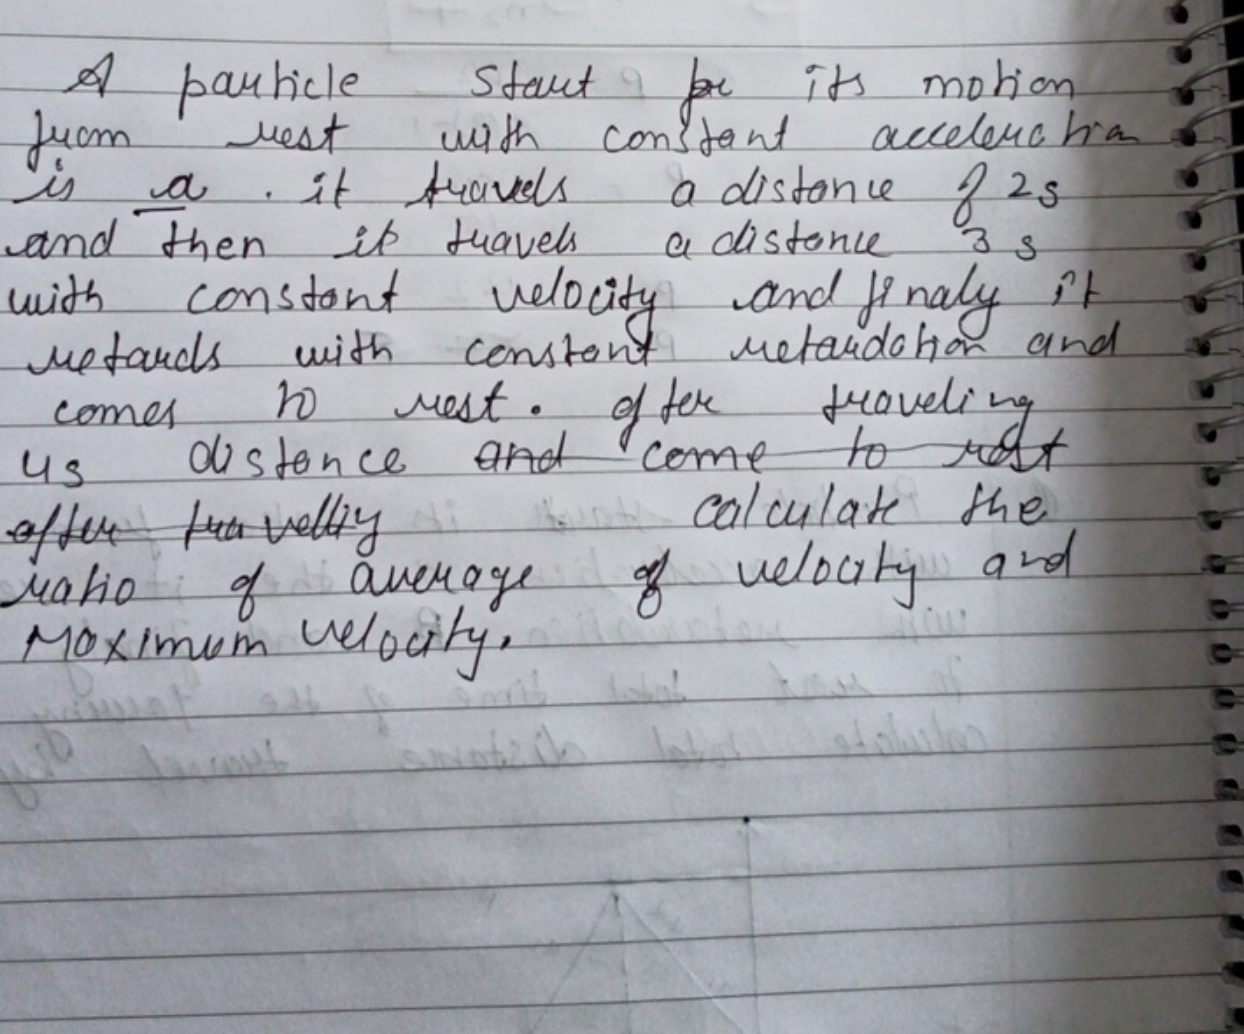 A particle start for its motion
from rest with constant acceleration
is a . it travels a distance of 2s
and then it travels a distance 3s
with constant velocity and finaly it
retards with constant retardation and
comes to rest. after traveling
4s distance and come to rest
after travelliy calculate the
ratio of average of velocity and
Maximum velocity.